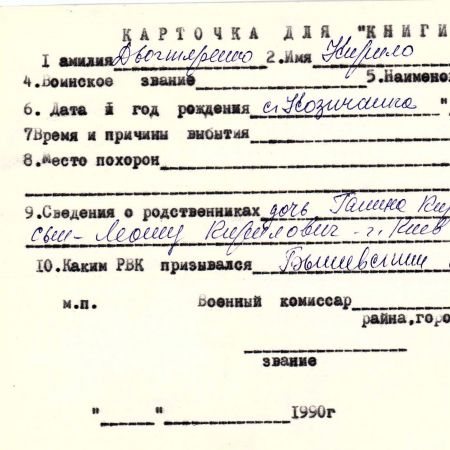 КАРТОЧКА ДЛЯ "КНИГИ
I амилия 2.Имя Кирило
4.Воинское звание 5.Наимено
6. Дата И год рождения с. Козичанка "
7Время и причины выбытия
8.Место похорон
9.Сведения о родственниках дочь Галина Кир
сын - Леонид Кирилович - г. Киев
10.Каким РВК призывался Бышевским
м.п. Военный комиссар
района,горо
звание
"____"__________1990г